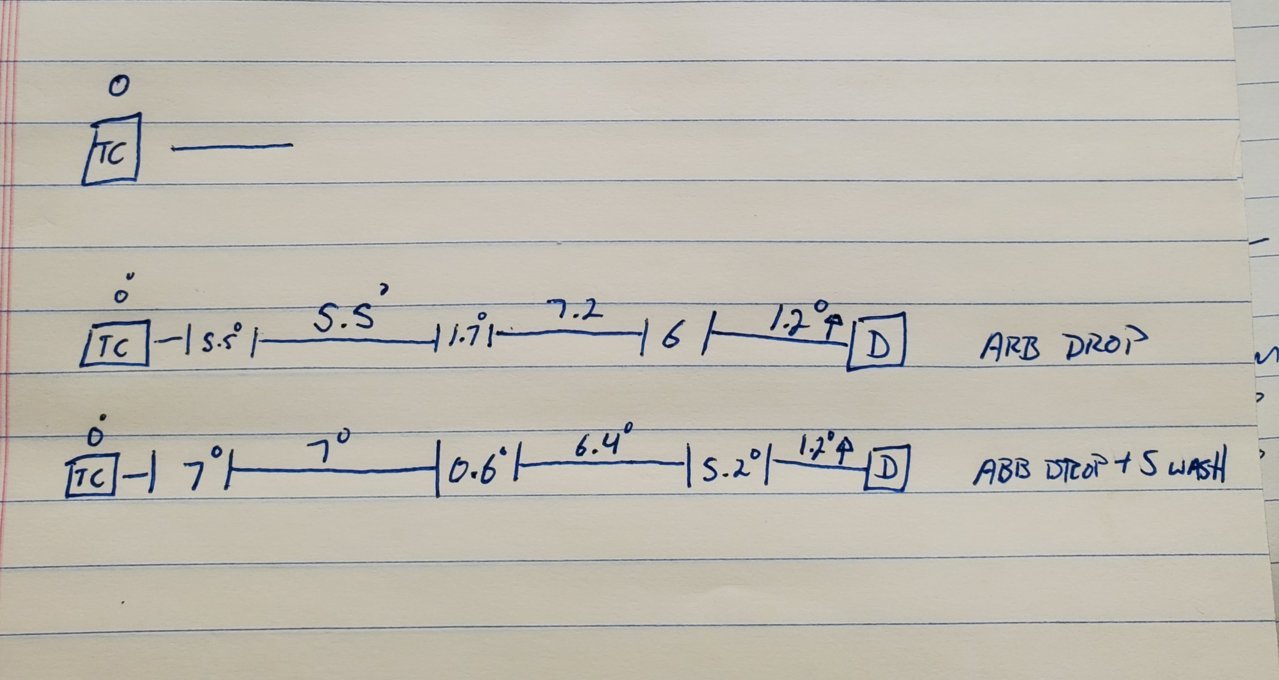 0
TC
0° 5.5° 7.2 1.2°↑
TC 5.5° 1.7° 6 D ARB DROP
0° 7° 6.4° 1.2°↑
TC 7° 0.6° 5.2° D ABB DROP + 5 WASH